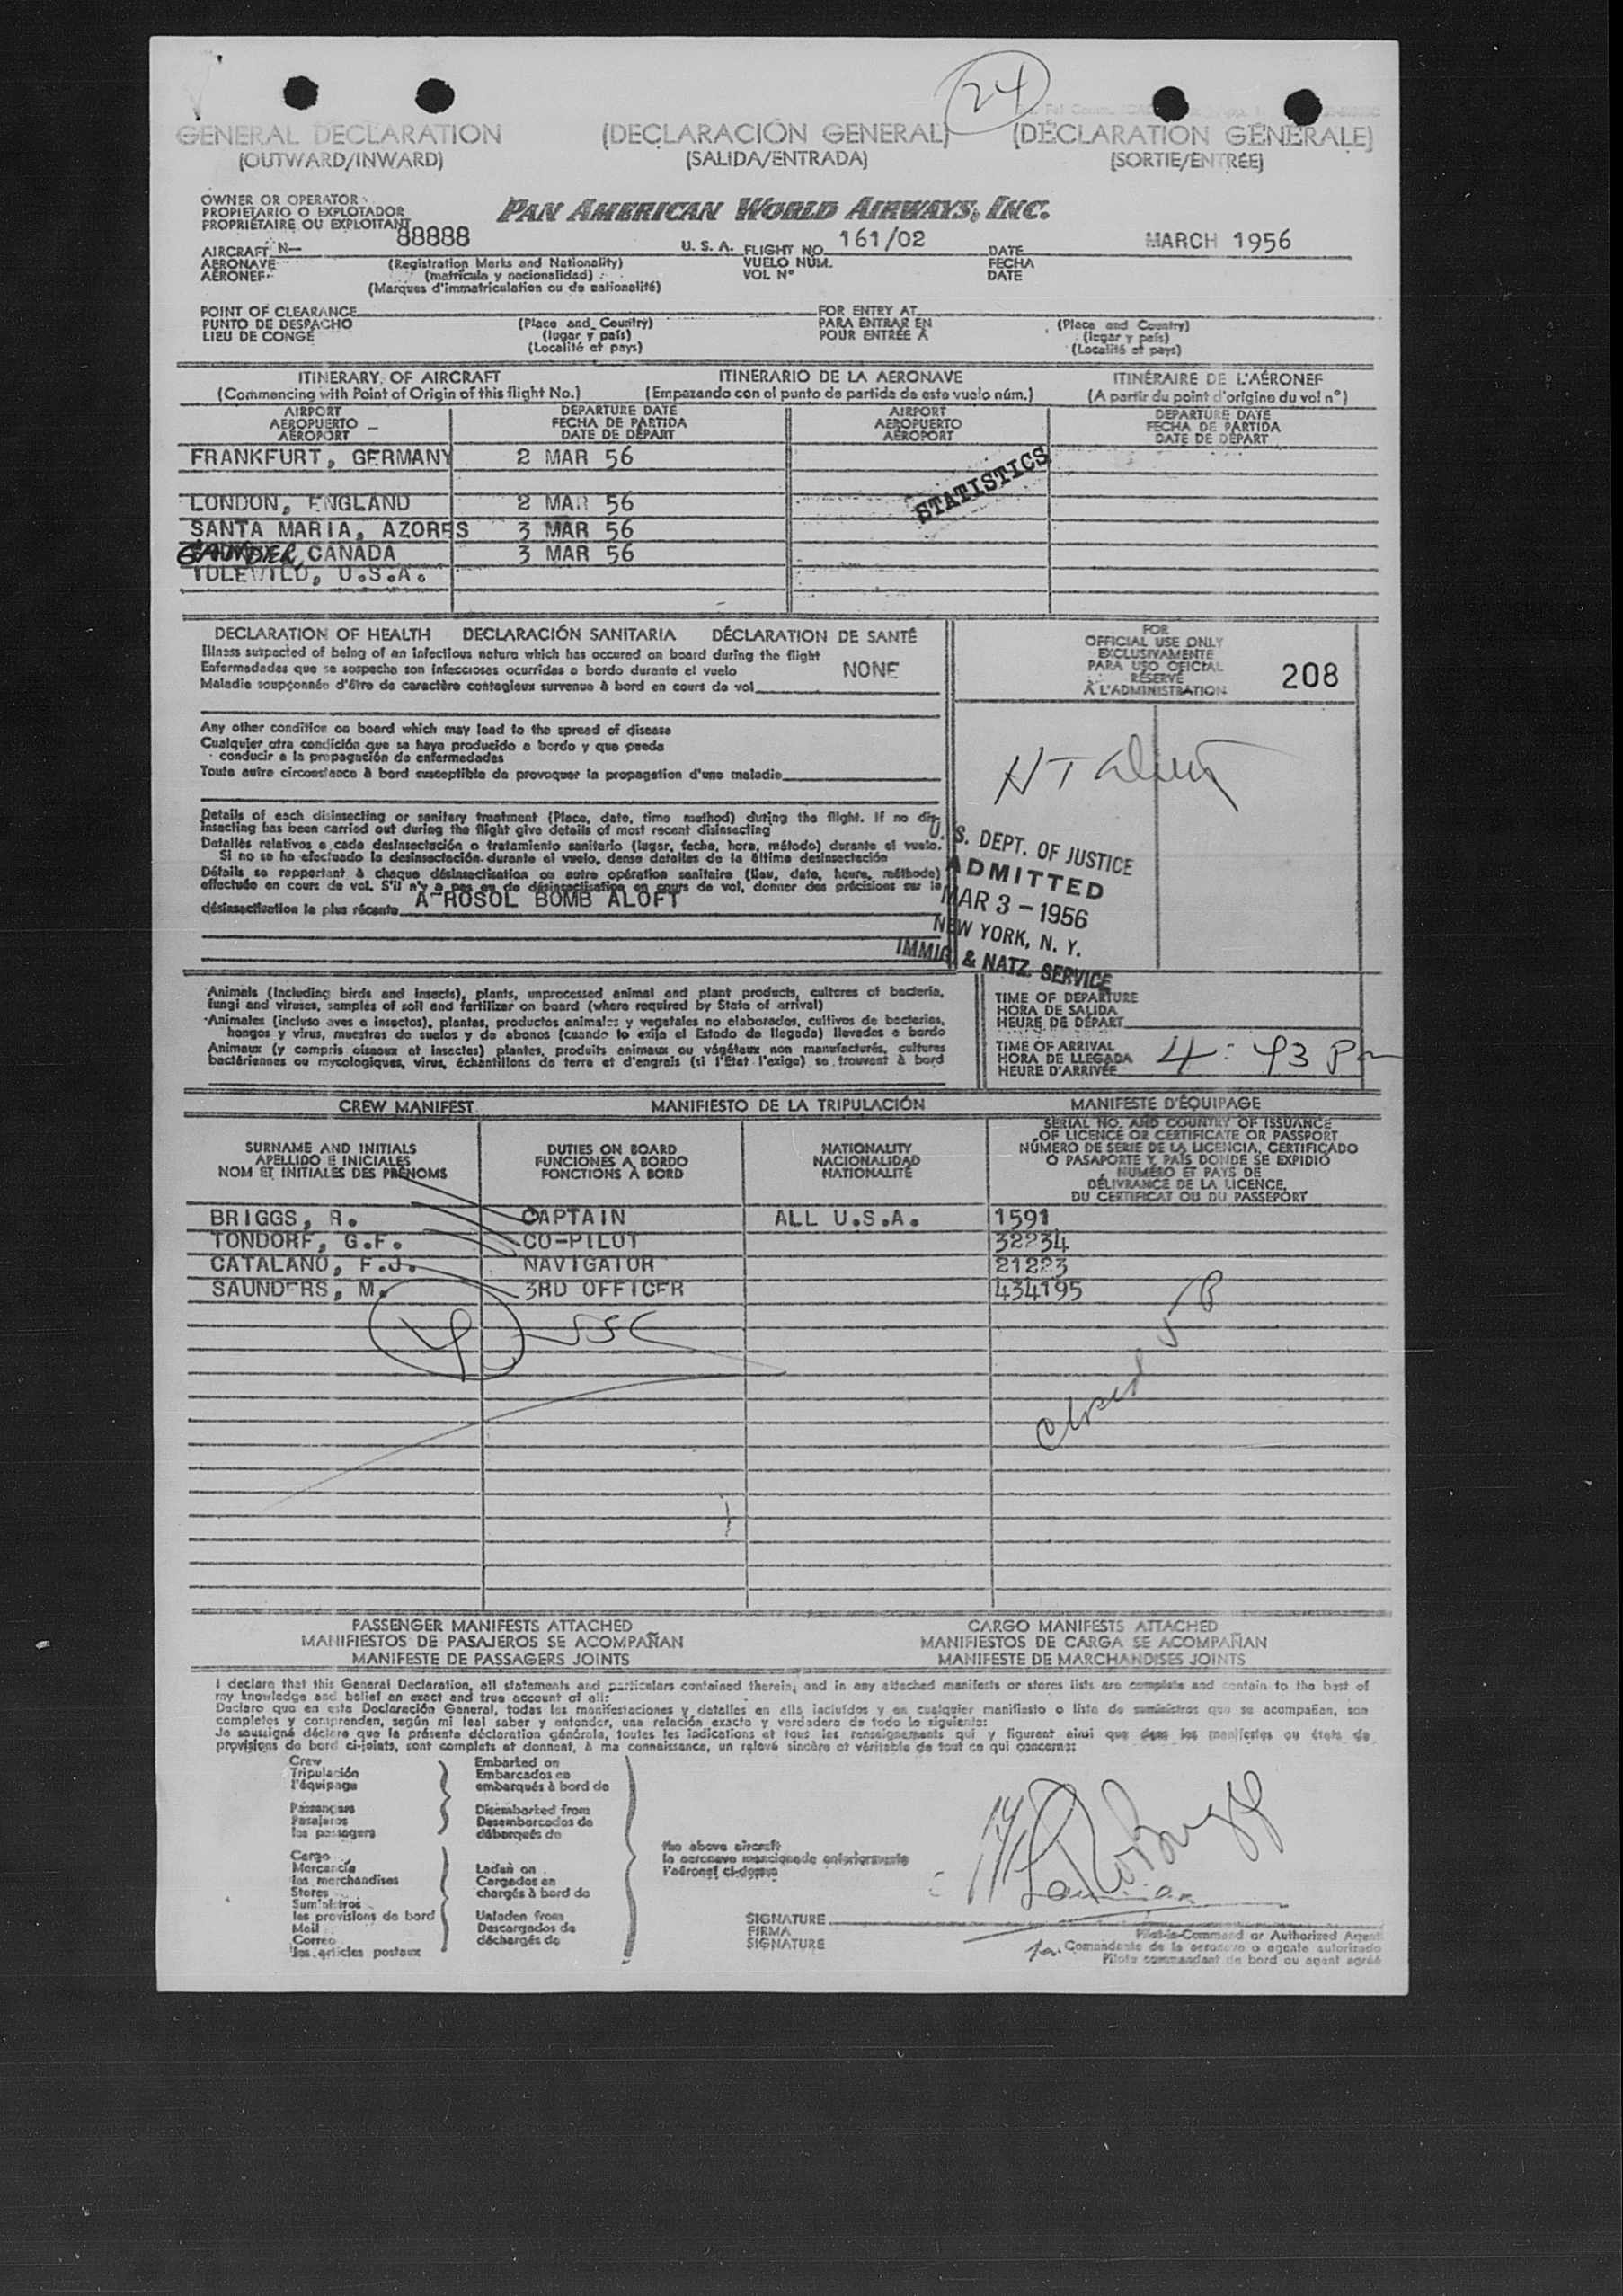 24
GENERAL DECLARATION (DECLARACIÓN GENERAL) (DÉCLARATION GÉNÉRALE)
(OUTWARD/INWARD) (SALIDA/ENTRADA) (SORTIE/ENTRÉE)
OWNER OR OPERATOR
PROPIETARIO O EXPLOTADOR
PROPRIÉTAIRE OU EXPLOITANT
PAN AMERICAN WORLD AIRWAYS, INC.
AIRCRAFT N— 88888 U. S. A. FLIGHT NO. 161/02 DATE MARCH 1956
AERONAVE (Registration Marks and Nationality) VUELO NÚM. FECHA
AÉRONEF (matrícula y nacionalidad) VOL N° DATE
(Marques d'immatriculation ou de nationalité)
POINT OF CLEARANCE FOR ENTRY AT
PUNTO DE DESPACHO (Place and Country) PARA ENTRAR EN (Place and Country)
LIEU DE CONGÉ (lugar y país) POUR ENTRÉE A (lugar y país)
(Localité et pays) (Localité et pays)
ITINERARY OF AIRCRAFT ITINERARIO DE LA AERONAVE ITINÉRAIRE DE L'AÉRONEF
(Commencing with Point of Origin of this flight No.) (Empezando con el punto de partida de este vuelo núm.) (A partir du point d'origine du vol n°)
AIRPORT DEPARTURE DATE AIRPORT DEPARTURE DATE
AEROPUERTO FECHA DE PARTIDA AEROPUERTO FECHA DE PARTIDA
AÉROPORT DATE DE DÉPART AÉROPORT DATE DE DÉPART
FRANKFURT, GERMANY 2 MAR 56
STATISTICS
LONDON, ENGLAND 2 MAR 56
SANTA MARIA, AZORES 3 MAR 56
GANDER, CANADA 3 MAR 56
IDLEWILD, U.S.A.
DECLARATION OF HEALTH DECLARACIÓN SANITARIA DÉCLARATION DE SANTÉ
Illness suspected of being of an infectious nature which has occured on board during the flight
Enfermedades que se sospecha son infecciosas ocurridas a bordo durante el vuelo NONE
Maladie soupçonnée d'être de caractère contagieux survenue à bord en cours de vol
FOR
OFFICIAL USE ONLY
EXCLUSIVAMENTE
PARA USO OFICIAL
RÉSERVÉ
À L'ADMINISTRATION
208
Any other condition on board which may lead to the spread of disease
Cualquier otra condición que se haya producido a bordo y que pueda
conducir a la propagación de enfermedades
Toute autre circonstance à bord susceptible de provoquer la propagation d'une maladie
Details of each disinsecting or sanitary treatment (Place, date, time method) during the flight. If no dis-
insecting has been carried out during the flight give details of most recent disinsecting
Detalles relativos a cada desinsectación o tratamiento sanitario (lugar, fecha, hora, método) durante el vuelo.
Si no se ha efectuado la desinsectación durante el vuelo, dense detalles de la última desinsectación
Détails se rapportant à chaque désinsectisation ou autre opération sanitaire (lieu, date, heure, méthode)
effectuée en cours de vol. S'il n'y a pas eu de désinsectisation en cours de vol, donner des précisions sur la
désinsectisation la plus récente A ROSOL BOMB ALOFT
U. S. DEPT. OF JUSTICE
ADMITTED
MAR 3 - 1956
NEW YORK, N. Y.
IMMIG. & NATZ. SERVICE
Animals (Including birds and insects), plants, unprocessed animal and plant products, cultures of bacteria,
fungi and viruses, samples of soil and fertilizer on board (where required by State of arrival)
Animales (incluso aves e insectos), plantas, productos animales y vegetales no elaborados, cultivos de bacterias,
hongos y virus, muestras de suelos y de abonos (cuando lo exija el Estado de llegada) llevados a bordo
Animaux (y compris oiseaux et insectes) plantes, produits animaux ou végétaux non manufacturés, cultures
bactériennes ou mycologiques, virus, échantillons de terre et d'engrais (si l'Etat l'exige) se trouvant à bord
TIME OF DEPARTURE
HORA DE SALIDA
HEURE DE DÉPART
TIME OF ARRIVAL
HORA DE LLEGADA 4:43 Pm
HEURE D'ARRIVÉE
CREW MANIFEST MANIFIESTO DE LA TRIPULACIÓN MANIFESTE D'ÉQUIPAGE
SURNAME AND INITIALS
APELLIDO E INICIALES
NOM ET INITIALES DES PRÉNOMS
DUTIES ON BOARD
FUNCIONES A BORDO
FONCTIONS À BORD
NATIONALITY
NACIONALIDAD
NATIONALITÉ
SERIAL NO. AND COUNTRY OF ISSUANCE
OF LICENCE OR CERTIFICATE OR PASSPORT
NÚMERO DE SERIE DE LA LICENCIA, CERTIFICADO
O PASAPORTE Y PAÍS DONDE SE EXPIDIÓ
NUMÉRO ET PAYS DE
DÉLIVRANCE DE LA LICENCE,
DU CERTIFICAT OU DU PASSEPORT
BRIGGS, R. CAPTAIN ALL U.S.A. 1591
TONDORF, G.F. CO-PILOT 32234
CATALANO, F.J. NAVIGATOR 21223
SAUNDERS, M. 3RD OFFICER 434195
PASSENGER MANIFESTS ATTACHED CARGO MANIFESTS ATTACHED
MANIFIESTOS DE PASAJEROS SE ACOMPAÑAN MANIFIESTOS DE CARGA SE ACOMPAÑAN
MANIFESTE DE PASSAGERS JOINTS MANIFESTE DE MARCHANDISES JOINTS
I declare that this General Declaration, all statements and particulars contained therein, and in any attached manifests or stores lists are complete and contain to the best of
my knowledge and belief an exact and true account of all:
Declaro que en esta Declaración General, todas las manifestaciones y detalles en ella incluídos y en cualquier manifiesto o lista de suministros que se acompañan, son
completos y comprenden, según mi leal saber y entender, una relación exacta y verdadera de todo lo siguiente:
Je soussigné déclare que la présente déclaration générale, toutes les indications et tous les renseignements qui y figurent ainsi que dans les manifestes ou états de
provisions de bord ci-joints, sont complets et donnent, à ma connaissance, un relevé sincère et véritable de tout ce qui concerne:
Crew
Tripulación
l'équipage
Passengers
Pasajeros
les passagers
Cargo
Mercancía
les marchandises
Stores
Suministros
les provisions de bord
Mail
Correo
les articles postaux
Embarked on
Embarcados en
embarqués à bord de
Disembarked from
Desembarcados de
débarqués de
Laden on
Cargados en
chargés à bord de
Unladen from
Descargados de
déchargés de
the above aircraft
la aeronave mencionada anteriormente
l'aéronef ci-dessus
SIGNATURE
FIRMA
SIGNATURE
Pilot-in-Command or Authorized Agent
Comandante de la aeronave o agente autorizado
Pilote commandant de bord ou agent agréé